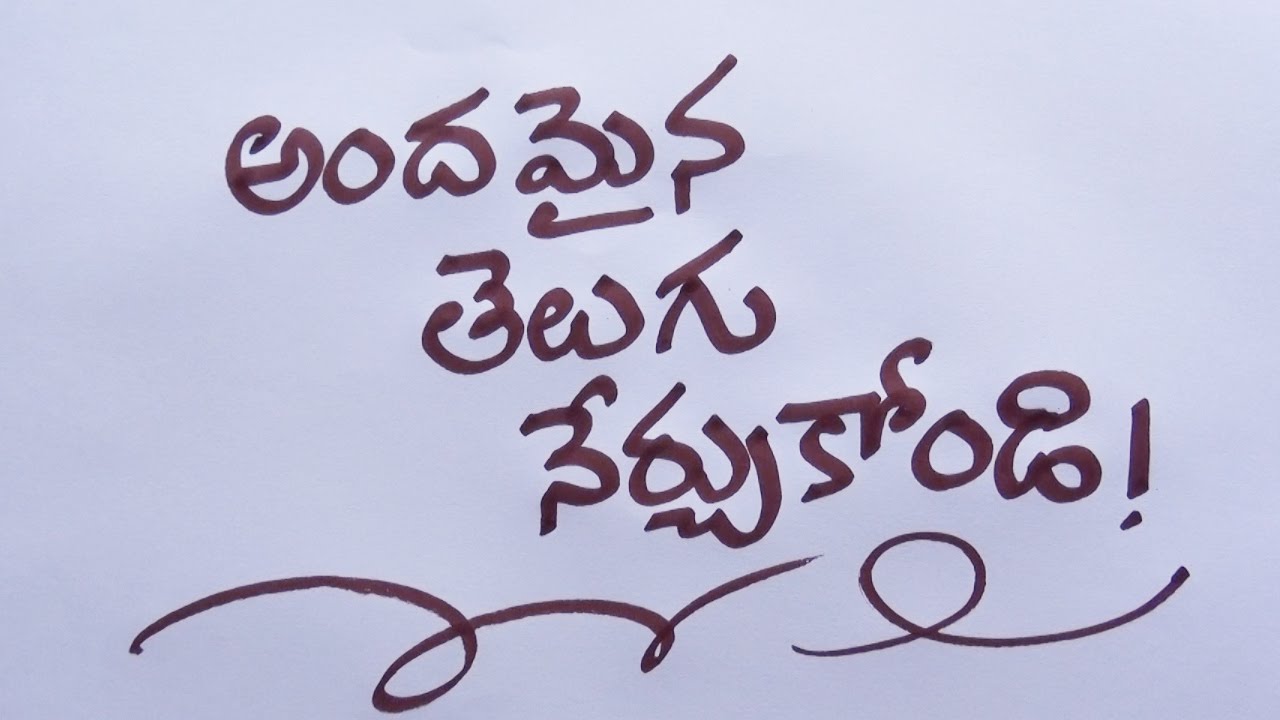 అందమైన
తెలుగు
నేర్చుకోండి!